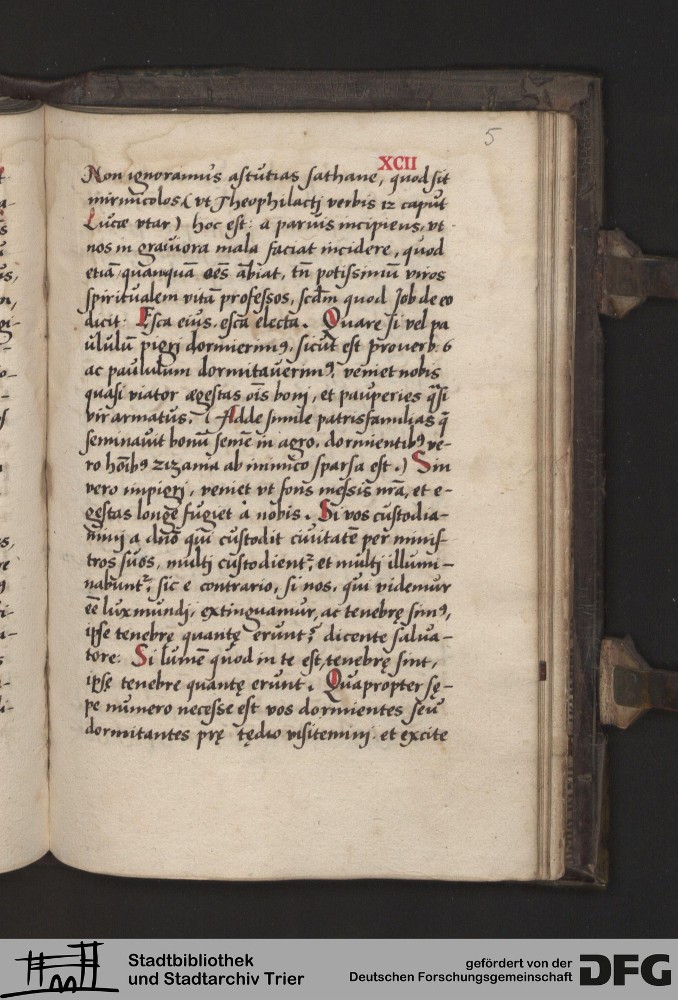 5
XCII
Non ignoramus astutias sathane, quod sit
mirmicoleos (vt Theophilacti verbis in caput
Lucæ vtar) hoc est: a paruis incipiens, vt
nos in grauiora mala faciat incidere, quod
etiā quanquā oēs ābiat, tn̄ potissimū viros
spiritualem vitā professos, scdm quod Job de eo
dicit: Esca eius, esca electa. Quare si vel pa
ululū pigri dormierimꝰ, sicut est prouerb: 6
ac paululum dormitauerimꝰ, veniet nobis
quasi viator ægestas oīs boni, et pauperies q̄si
vir armatus. (Adde simile patrisfamilias q̄
seminauit bonū semē in agro, dormientibꝰ ve-
ro hōibꝰ zizania ab inimico sparsa est.) Sin
vero impigri, veniet vt fons messis nr̄a, et e-
gestas longe fugiet à nobis. Si vos custodia-
mini a dnō qui custodit ciuitatē per minis
tros suos, multi custodient², et multi illumi-
nabunt², sic e contrario, si nos, qui videmur
eē lux mundi, extinguamur, ac tenebrę simꝰ,
ipse tenebre quantę erunt? dicente salua-
tore: Si lumē quod in te est, tenebrę sint,
ipsę tenebre quantę erunt. Quapropter sę-
pe numero necesse est vos dormientes seu
dormitantes prę tędio visitemini et excite
Stadtbibliothek
und Stadtarchiv Trier
gefördert von der
Deutschen Forschungsgemeinschaft
DFG